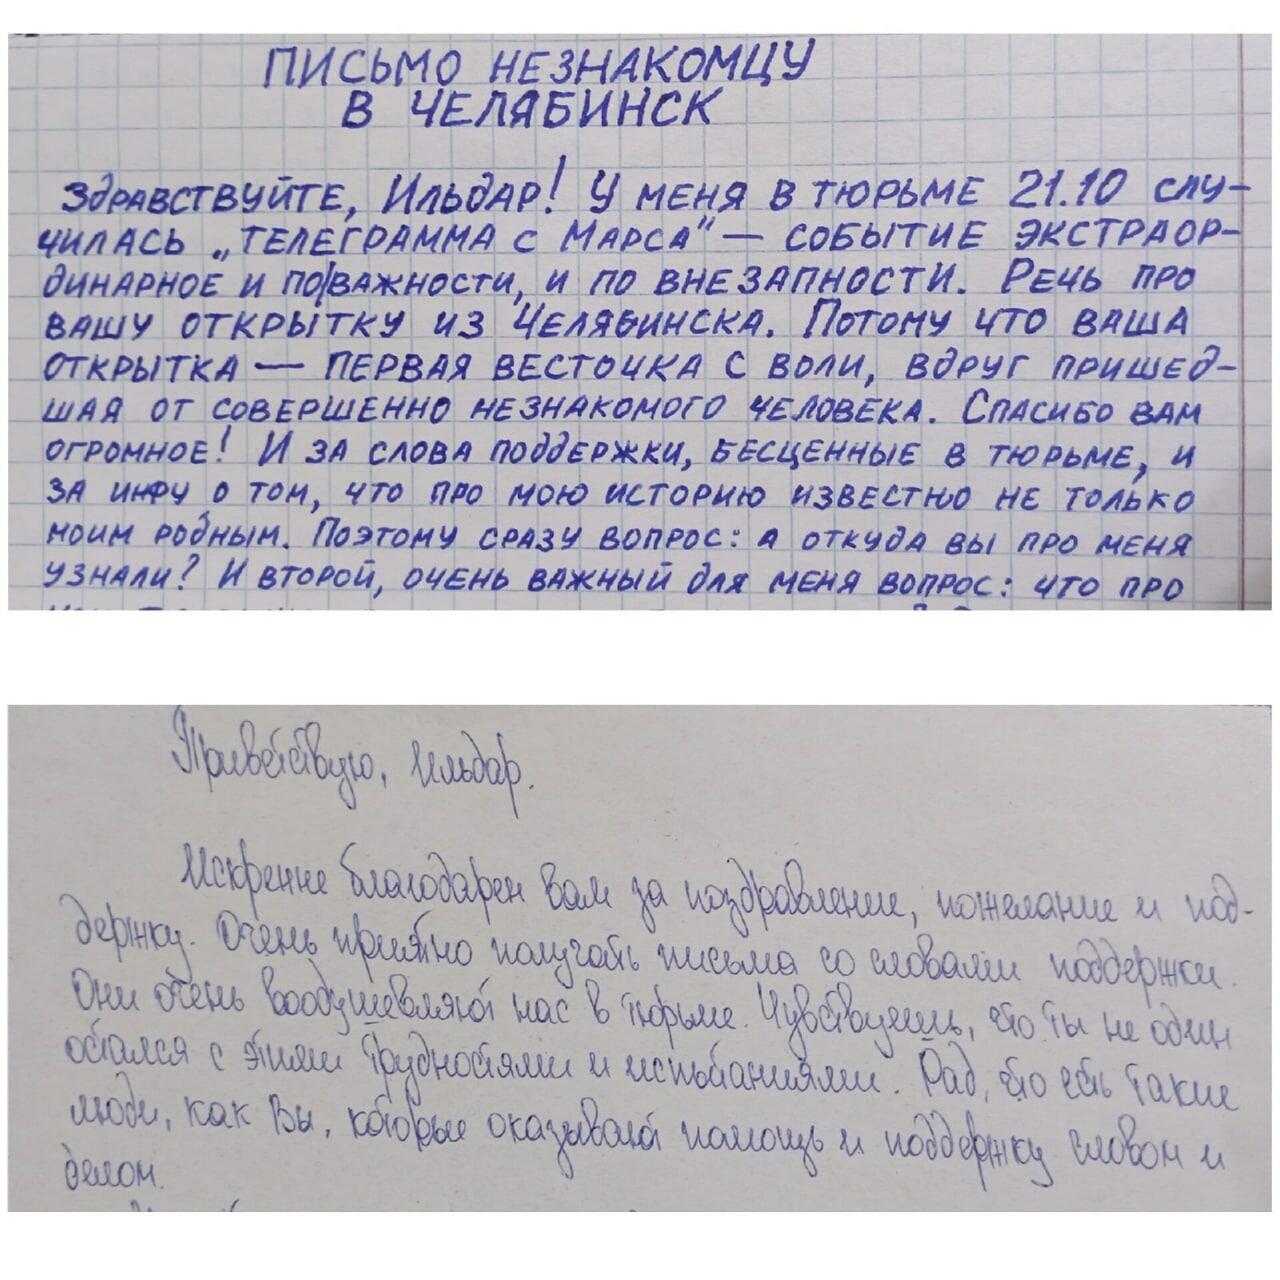 ПИСЬМО НЕЗНАКОМЦУ
В ЧЕЛЯБИНСК
Здравствуйте, Ильдар! У меня в тюрьме 21.10 слу-
чилась „Телеграмма с Марса" — событие экстраор-
динарное и по важности, и по внезапности. Речь про
вашу открытку из Челябинска. Потому что ваша
открытка — первая весточка с воли, вдруг пришед-
шая от совершенно незнакомого человека. Спасибо вам
огромное! И за слова поддержки, бесценные в тюрьме, и
за инфу о том, что про мою историю известно не только
моим родным. Поэтому сразу вопрос: а откуда вы про меня
узнали? И второй, очень важный для меня вопрос: что про
Приветствую, Ильдар.
Искренне благодарен вам за поздравление, пожелание и под-
держку. Очень приятно получать письма со словами поддержки.
Они очень воодушевляют нас в тюрьме. Чувствуешь, что ты не один
остался с этими трудностями и испытаниями. Рад, что есть такие
люди, как Вы, которые оказывают помощь и поддержку словом и
делом.